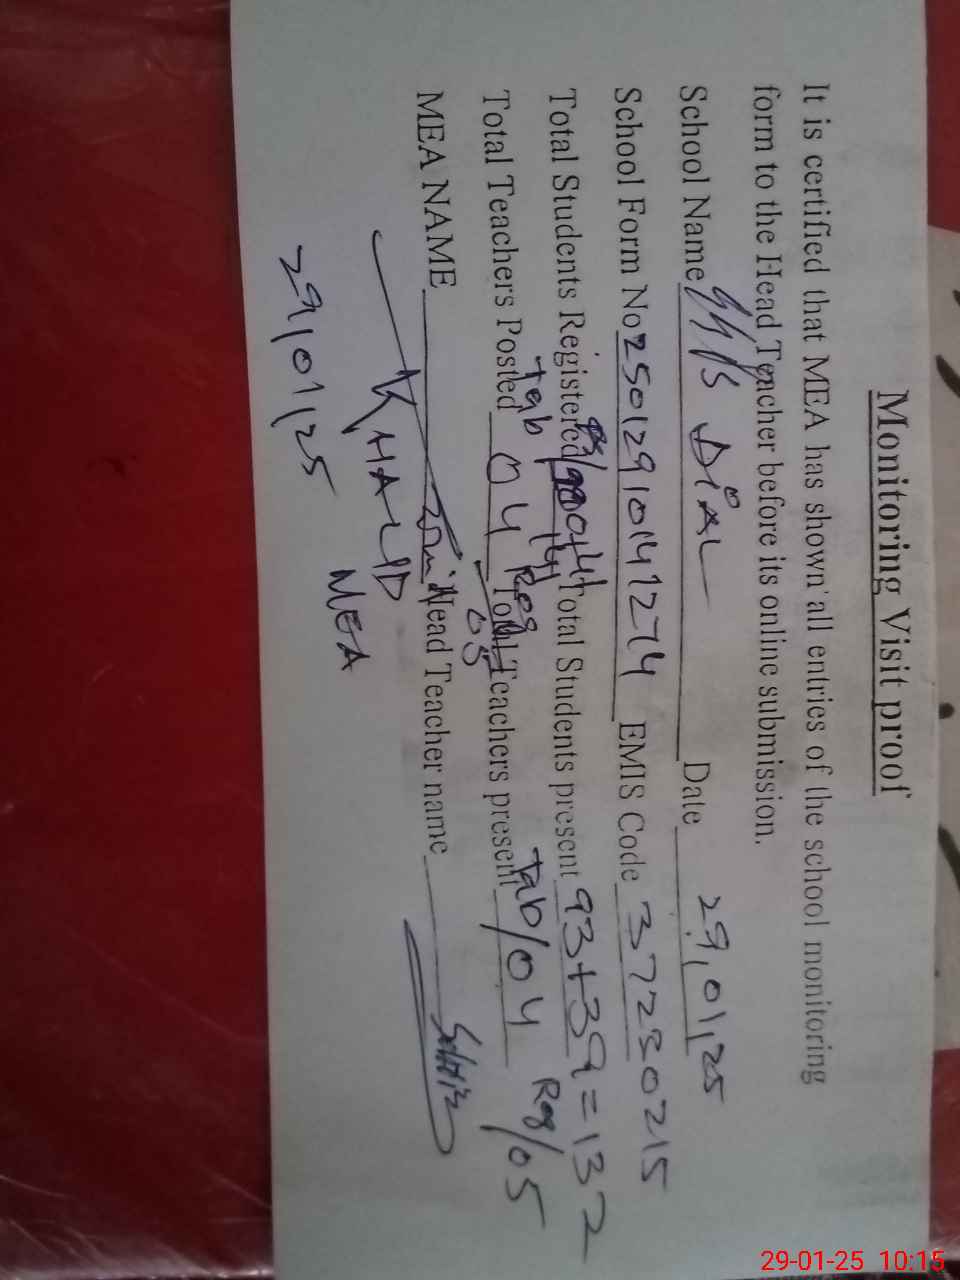 Monitoring Visit proof
It is certified that MEA has shown all entries of the school monitoring
form to the Head Teacher before its online submission.
School Name DIAL Date 29,01,25
School Form No 2501291014 EMIS Code 37230215
Total Students Registered Total Students present 93+39=132
Tab Reg Tab/04 Reg/05
Total Teachers Posted 04 05 Total Teachers present
MEA NAME Head Teacher name
KHALID
MEA
29,01,25
29-01-25 10:15